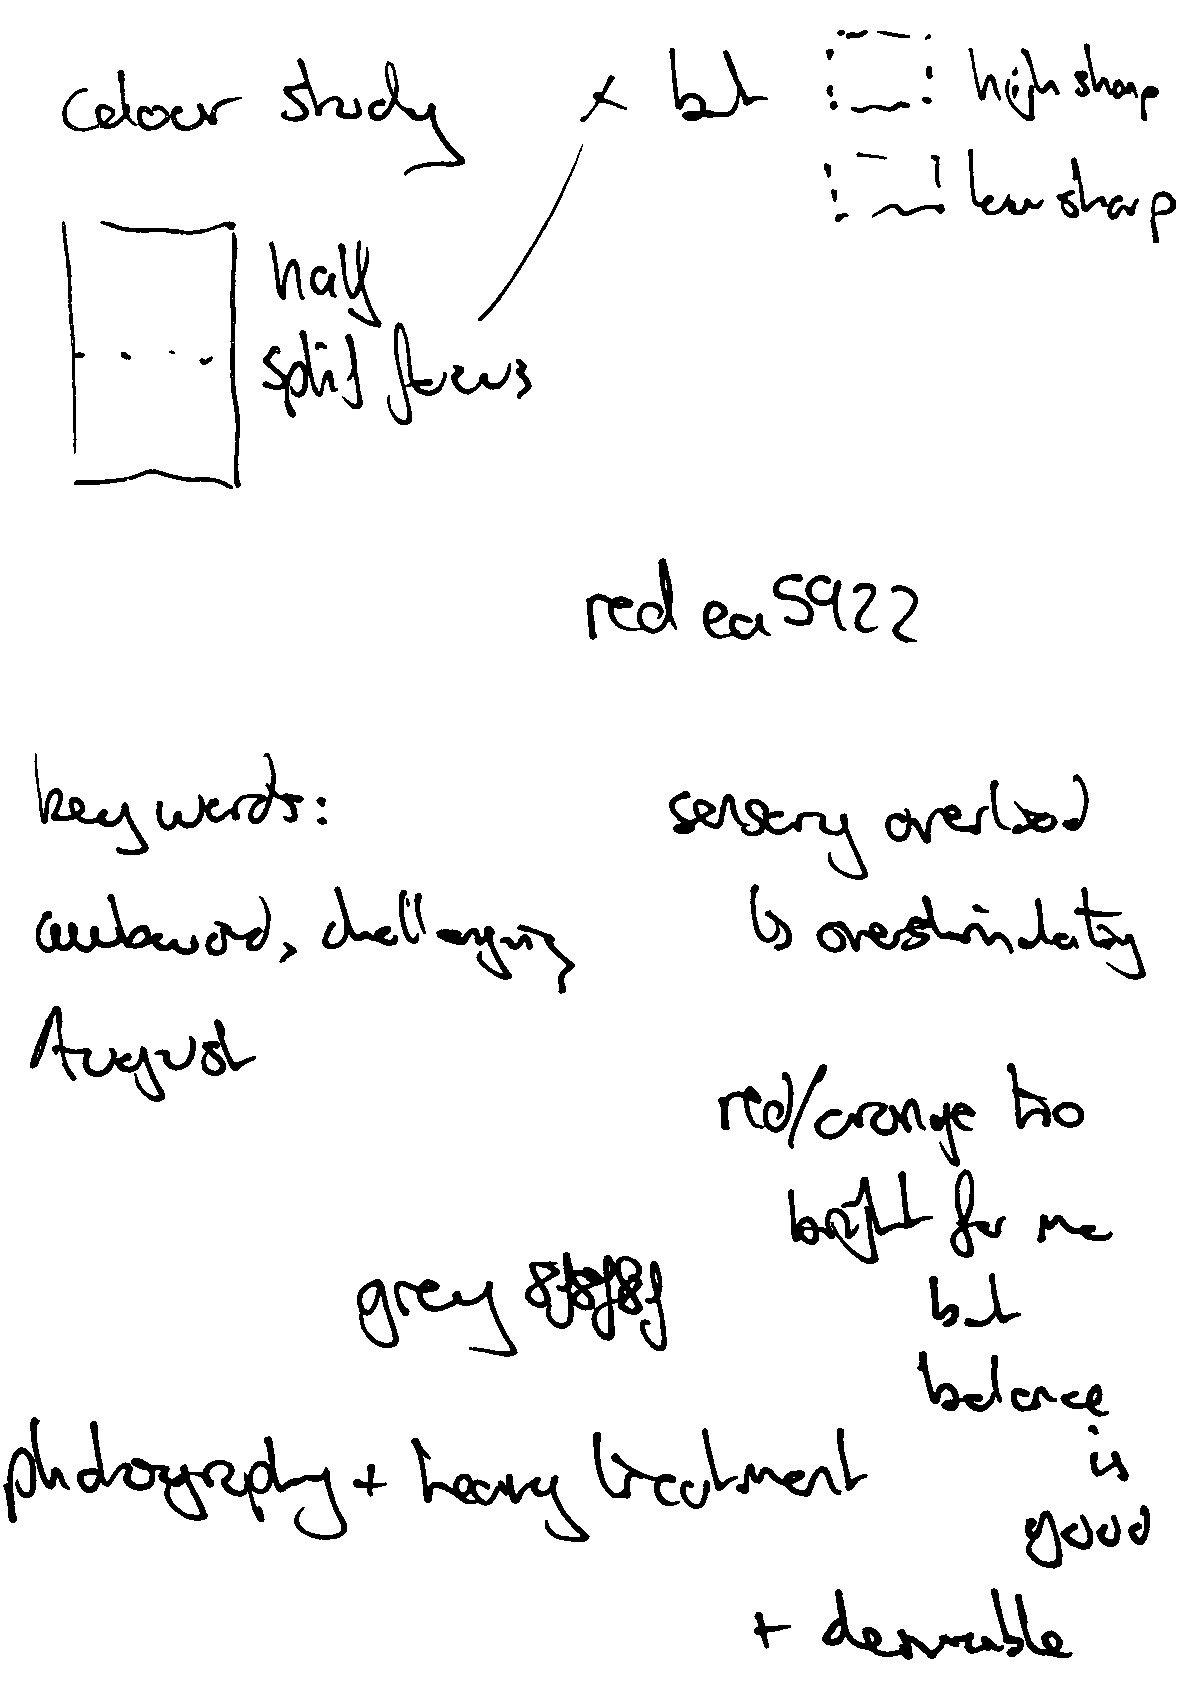 colour study
+ but
high sharp
low sharp
half
split focus
red ea5922
key words:
awkward, challenging
August
sensory overload
↳ overstimulating
red/orange too
bright for me
but
balance
is
good
+ desirable
grey 8f8f8f
photography + heavy treatment